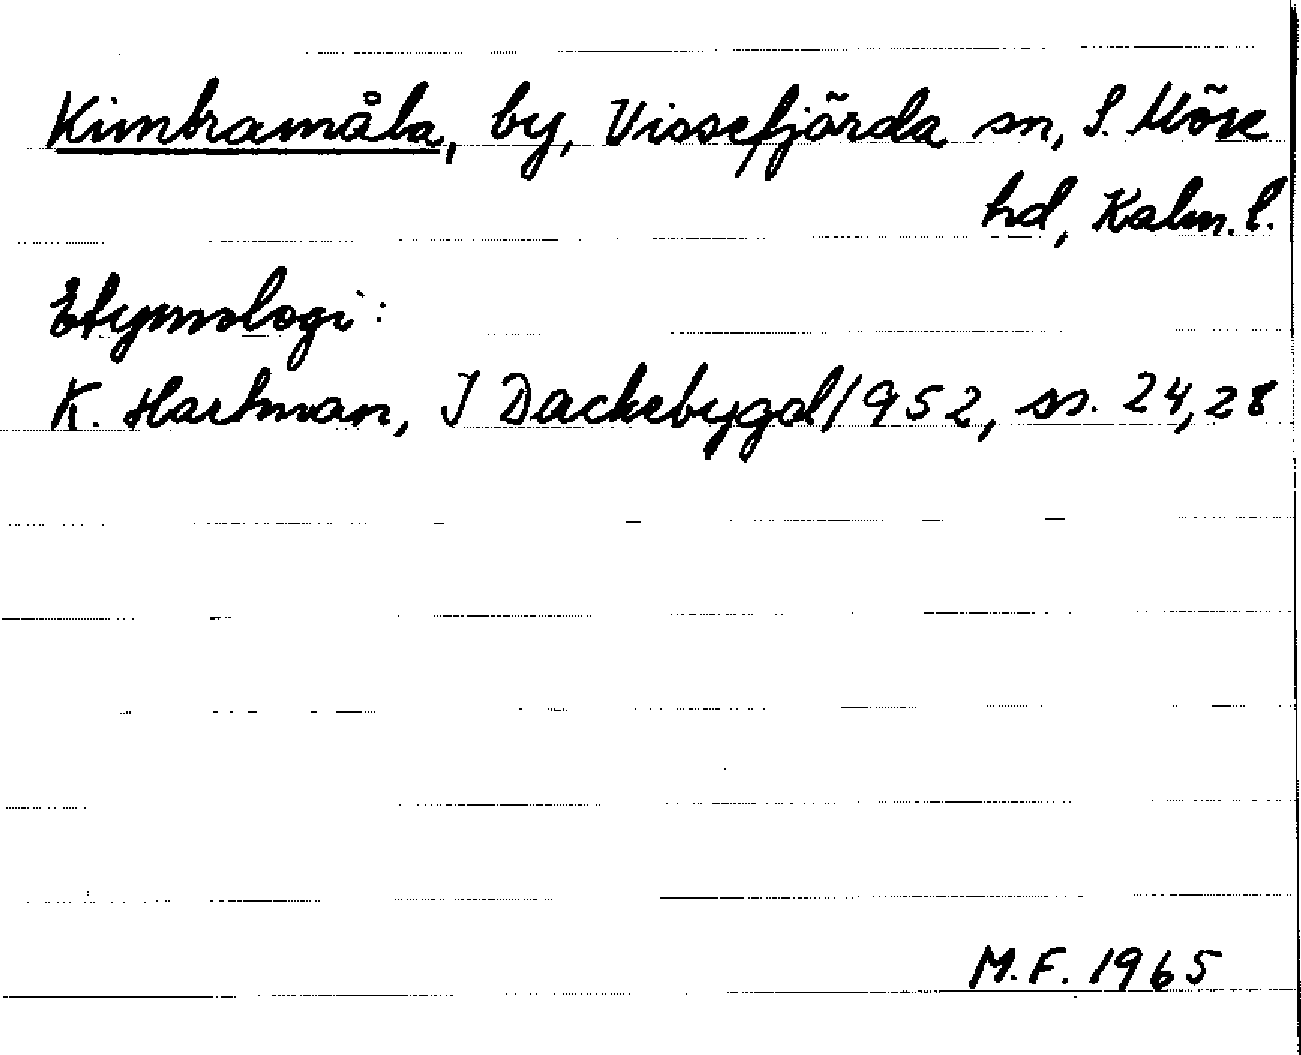 Kimbramåla, by, Vissefjärda sn, S. Möre
hd, Kalm. l.
Etymologi:
K. Hartman, I Dackebygd 1952, ss. 24, 28
M.F. 1965